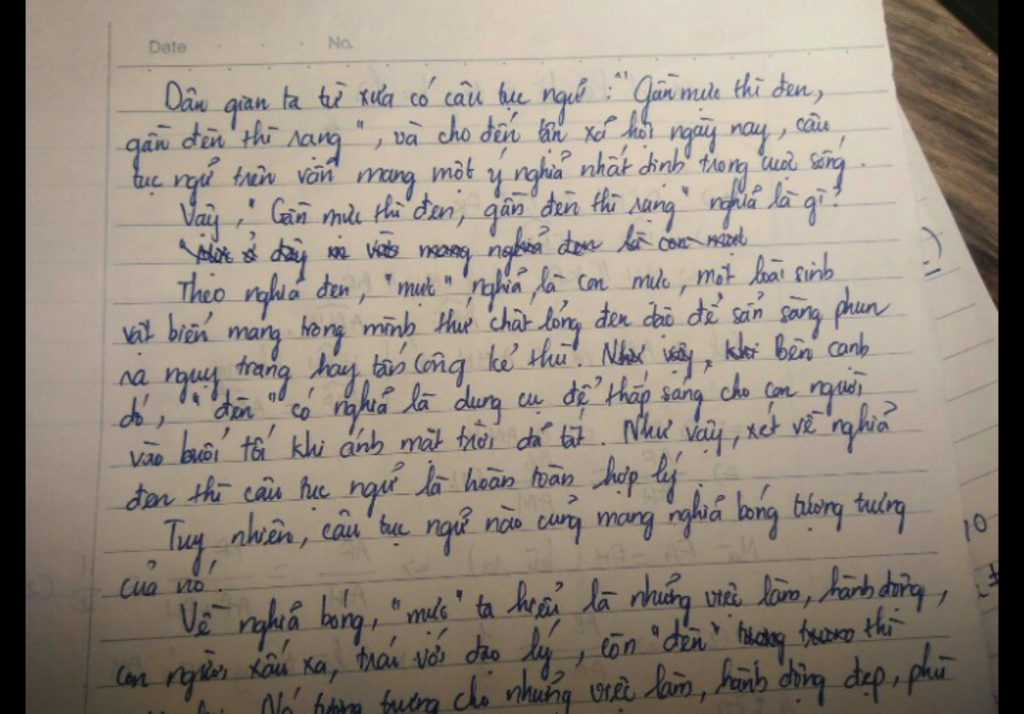 Date No.
Dân gian ta từ xưa có câu tục ngữ : "Gần mực thì đen,
gần đèn thì sang", và cho đến tận xã hội ngày nay, câu
tục ngữ trên vẫn mang một ý nghĩa nhất định trong cuộc sống.
Vậy, "Gần mực thì đen, gần đèn thì sạng" nghĩa là gì?
đây mang nghĩa đen là con mực
Theo nghĩa đen, "mực" nghĩa là con mực, một loài sinh
vật biển mang trong mình thứ chất lỏng đen đào để sẵn sàng phun
ra nguỵ trang hay tấn công kẻ thù. Như vậy, khi Bên cạnh
đó, "đèn" có nghĩa là dụng cụ để thắp sáng cho con người
vào buổi tối khi ánh mặt trời đã tắt. Như vậy, xét về nghĩa
đen thì câu tục ngữ là hoàn toàn hợp lý.
Tuy nhiên, câu tục ngữ nào cũng mang nghĩa bóng tượng trưng
của nó.
Về nghĩa bóng, "mực" ta hiểu là những việc làm, hành động,
con người xấu xa, trái với đạo lý, còn "đèn" tượng trưng thì
Nó tượng trưng cho những việc làm, hành động đẹp, phù
10